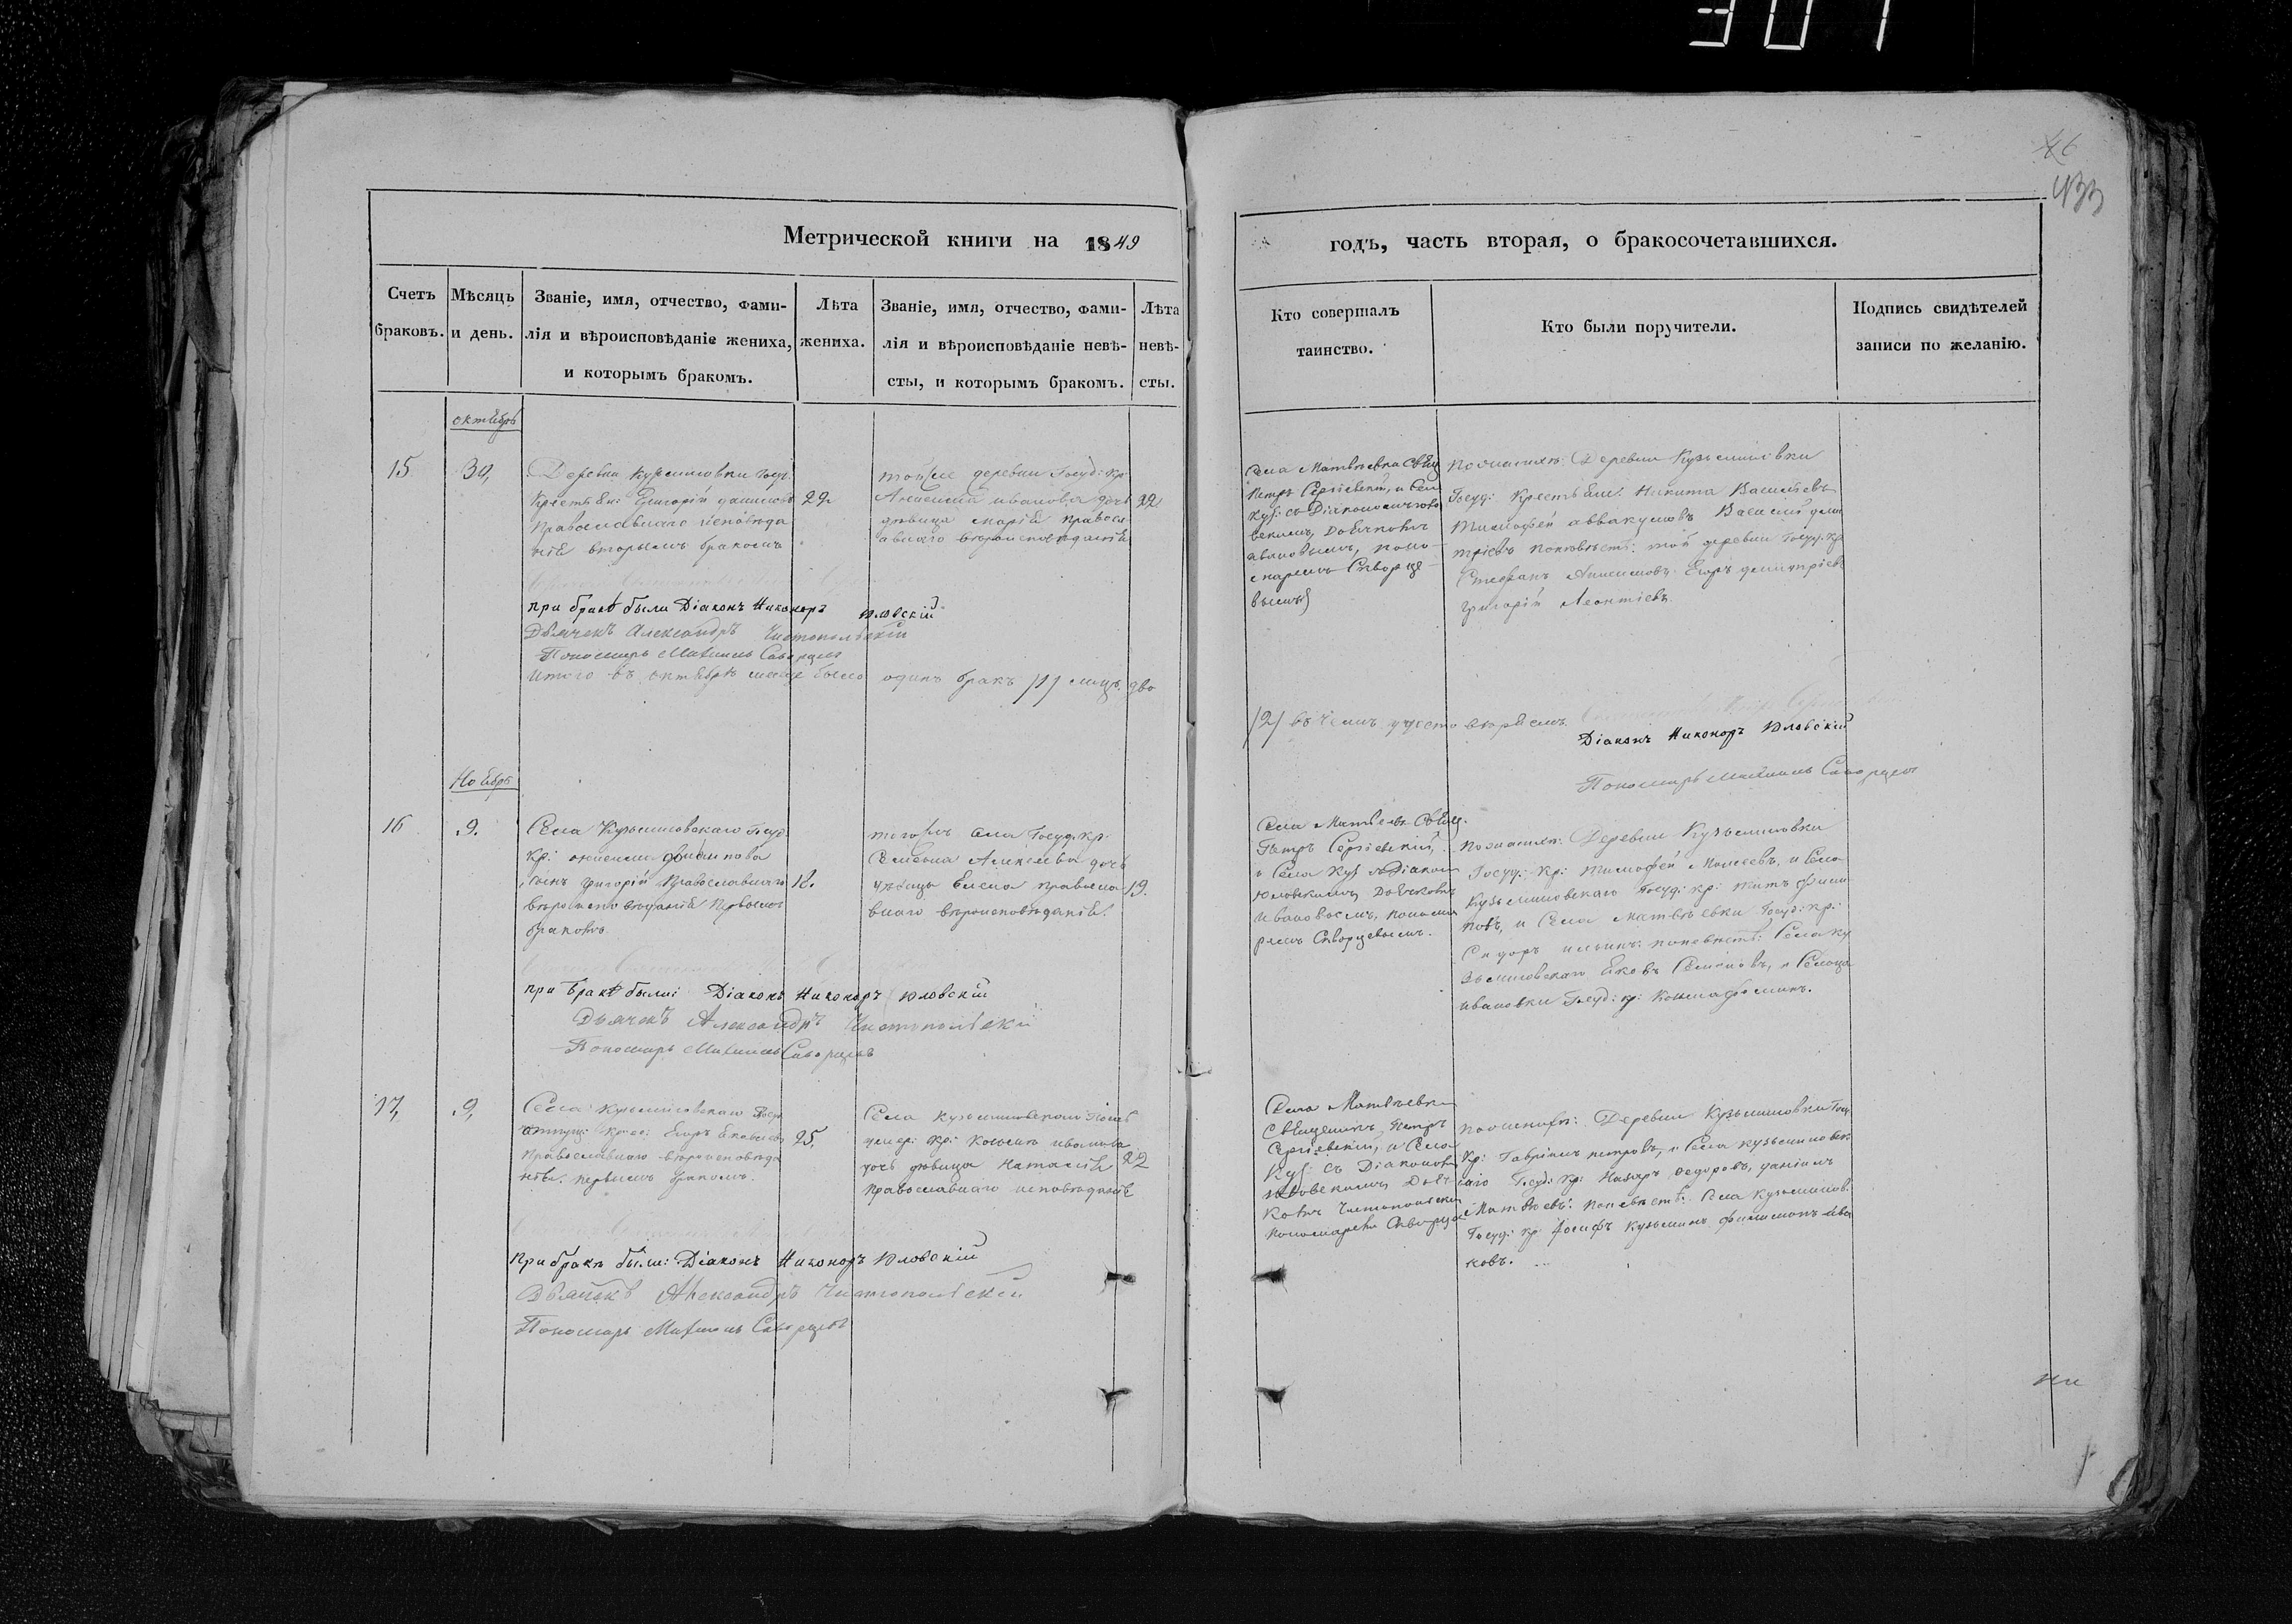 307
433
Метрической книги на 1849
годъ, часть вторая, о бракосочетавшихся.
Счетъ браковъ.
Мѣсяцъ и день.
Званіе, имя, отчество, фами-
лія и вѣроисповѣданіе жениха,
и которымъ бракомъ.
Лѣта
жениха.
Званіе, имя, отчество, фами-
лія и вѣроисповѣданіе невѣ-
сты, и которымъ бракомъ.
Лѣта
невѣ-
сты.
Кто совершалъ
таинство.
Кто были поручители.
Подпись свидѣтелей
записи по желанію.
октябрь
15
30,
Деревни Кузьминовки Госуд.
Крестьян: Григорій
Православнаго исповѣда
ніе вторымъ бракомъ
22
тойже деревни Госуд: Кр:
иванова дочь
дѣвица Марія правосл
авнаго вѣроисповѣданія
22
Села Матвѣевки Свящ
Петръ Сергіевскій, и Села
Куз: съ Діакономъ Юло
вскимъ, Дьячкомъ
ивановымъ, поно
маремъ Скворце
вымъ
по женихѣ: Деревни Кузьминовки
Госуд: Крестьян: Никита Васильевъ
Тимофей аввакумовъ Василій дими
тріевъ по невѣстѣ: той деревни Госуд: Кр:
Стефанъ Анисимовъ Егоръ димитріевъ
григорій Леонтіевъ
при бракѣ были Діаконъ Никоноръ Юловскій
Дьячекъ Александръ Чистопольскій
Пономарь Михаилъ Скворцевъ
Итого въ октябрѣ месяце было одинъ бракъ /1/ лицъ два
/2/ въ чемъ удостовѣряемъ
Діаконъ Никоноръ Юловскій
Пономарь Михаилъ Скворцевъ
Ноябрь
16
9.
Села Кузьминовскаго Госуд.
кр: филипова
сынъ григорій Православнаго
вѣроисповѣданія Первымъ
бракомъ
18.
тогожъ села Госуд: кр:
Семена Алексѣева дочь
дѣвица Елена правосла
внаго вѣроисповѣданія.
19.
Села Матвѣев: Свящ.
Петръ Сергіевскій,
и Села Куз съ Діакон
Юловскимъ, Дьячкомъ
Ивановымъ, понома
ремъ Скворцевымъ.
по женихѣ: Деревни Кузьминовки
Госуд: Кр: Тимофей Моисеевъ, и Села
Кузьминовскаго Госуд: кр: Титъ фили
повъ, и Села Матвѣевки Госуд: кр:
Сидоръ ильинъ: по невѣстѣ: Села Ку
зьминовскаго Яковъ Семеновъ, и Сельца
ивановки Госуд: кр: Козма фоминъ.
при бракѣ были: Діаконъ Никоноръ Юловскій
Дьячекъ Александръ Чистопольскій
Пономарь Михаилъ Скворцевъ
17,
9,
Села Кузьминовскаго
отпущ: Егоръ Яковлевъ
Православнаго вѣроисповѣда
нія. первымъ бракомъ.
25.
Села Кузьминовскаго
кр: Космы иванова
дочь дѣвица Наталія
Православнаго исповѣданія
22
Села Матвѣевки
Священникъ Петръ
Сергіевскій, и Села
Куз: съ Діакономъ
Юловскимъ, Дьяч
комъ Чистопольским
пономаремъ Скворцев
по женихѣ: Деревни Кузьминовки Госуд
Кр: Гавріилъ петровъ, и Села Кузьминовск
аго Госуд: Кр: Назаръ Федоровъ, даніилъ
Матвѣевъ: по невѣстѣ: Села Кузьминов:
Госуд: Кр: Іосифъ Кузьминъ филимонъ Ива
новъ.
При бракѣ были: Діаконъ Никоноръ Юловскій
Дьячекъ Александръ Чистопольскій
Пономарь Михаилъ Скворцевъ